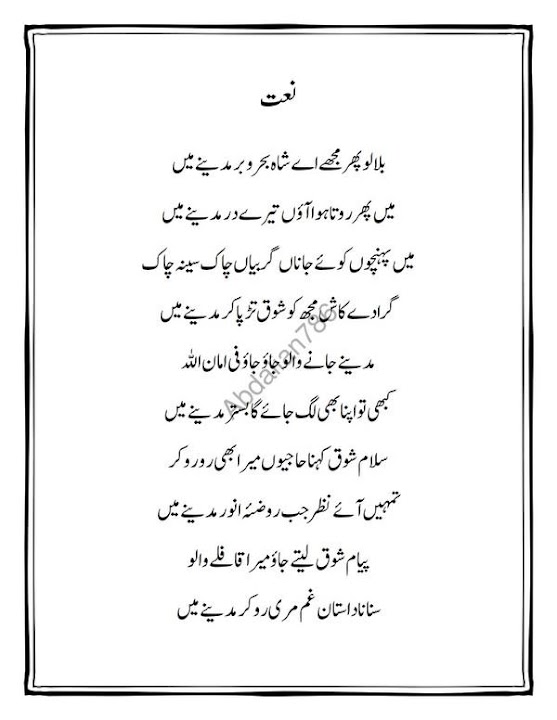 نعت
بلا لو پھر مجھے اے شاہ بحر و بر مدینے میں
میں پھر روتا ہوا آؤں تیرے در مدینے میں
میں پہنچوں کوئے جاناں گریباں چاک سینہ چاک
گرا دے کاش مجھ کو شوق تڑپا کر مدینے میں
مدینے جانے والو جاؤ جاؤ فی امان اللہ
کبھی تو اپنا بھی لگ جائے گا بستر مدینے میں
سلام شوق کہنا حاجیوں میرا بھی رو رو کر
تمہیں آئے نظر جب روضۂ انور مدینے میں
پیام شوق لیتے جاؤ میرا قافلے والو
سنانا داستان غم مری رو کر مدینے میں
Abdarian786